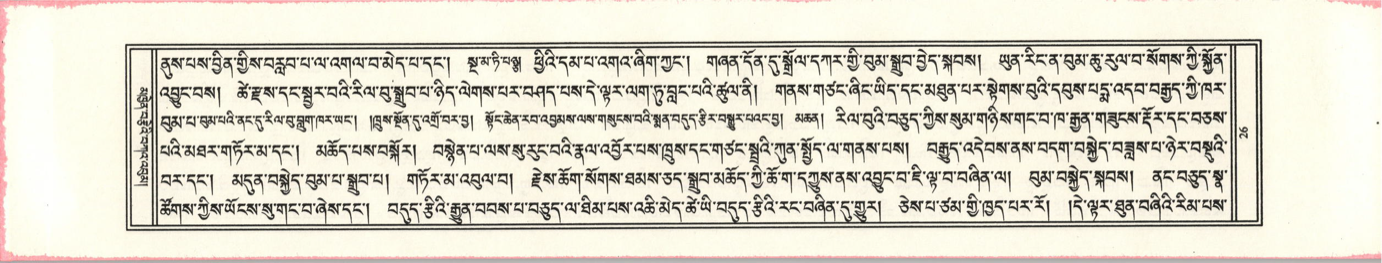 ནུས་པས་བྱིན་གྱིས་བརླབ་པ་ལ་འགལ་བ་མེད་པ་དང༌། སྔ་མ་ཏི་པཎྜི ཕྱིའི་དམ་པ་འགའ་ཞིག་ཀྱང༌། གཞན་དོན་དུ་སྒྲོལ་དཀར་གྱི་བུམ་སྒྲུབ་བྱེད་སྐབས། ཡུན་རིང་ན་བུམ་ཆུ་རུལ་བ་སོགས་ཀྱི་སྐྱོན་
འབྱུང་བས། ཚེ་རྫས་དང་སྦྱར་བའི་རིལ་བུ་སྒྲུབ་པ་ཉིད་ལེགས་པར་བཤད་པས་དེ་ལྟར་ལག་ཏུ་བླང་པའི་ཚུལ་ནི། གནས་གཙང་ཞིང་ཡིད་དང་མཐུན་པར་སྟེགས་བུའི་དབུས་པདྨ་འདབ་བརྒྱད་ཀྱི་ཁར་
བུམ་པ་བུམ་པའི་ནང་དུ་རིལ་བུ་བླུག་ཁར་ཡང༌། །ཁྲུས་སྔོན་དུ་འགྲོ་བར་བྱ། སྟོང་ཆེན་རབ་འབྱམས་ལས་གསུངས་བའི་སྨན་བདུད་རྩིར་བསྒྱུར་པའང་བྱ། མཆན། རིལ་བུའི་བཅུད་ཀྱིས་སུམ་གཉིས་གང་བ་ཁ་རྒྱན་གཟུངས་རྡོར་དང་བཅས་
པའི་མཐར་གཏོར་མ་དང༌། མཆོད་པས་བསྐོར། བསྙེན་པ་ལས་སུ་རུང་བའི་རྣལ་འབྱོར་པས་ཁྲུས་དང་གཙང་སྦྲའི་ཀུན་སྤྱོད་ལ་གནས་པས། བརྒྱུད་འདེབས་ནས་བདག་བསྐྱེད་བཟླས་པ་ཉེར་བསྡུའི་
བར་དང༌། མདུན་བསྐྱེད་བུམ་པ་སྒྲུབ་པ། གཏོར་མ་འབུལ་བ། རྗེས་ཆོག་སོགས་ཐམས་ཅད་སྒྲུབ་མཆོད་ཀྱི་ཆོ་ག་དཀྱུས་ནས་འབྱུང་བ་ཇི་ལྟ་བ་བཞིན་ལ། བུམ་བསྐྱེད་སྐབས། ནང་བཅུད་སྣ་
ཚོགས་ཀྱིས་ཡོངས་སུ་གང་བ་ཞེས་དང༌། བདུད་རྩིའི་རྒྱུན་བབས་པ་བཅུད་ལ་ཐིམ་པས་འཆི་མེད་ཚེ་ཡི་བདུད་རྩིའི་རང་བཞིན་དུ་གྱུར། ཅེས་པ་ཙམ་གྱི་ཁྱད་པར་རོ། །དེ་ལྟར་ཐུན་བཞིའི་རིམ་པས་